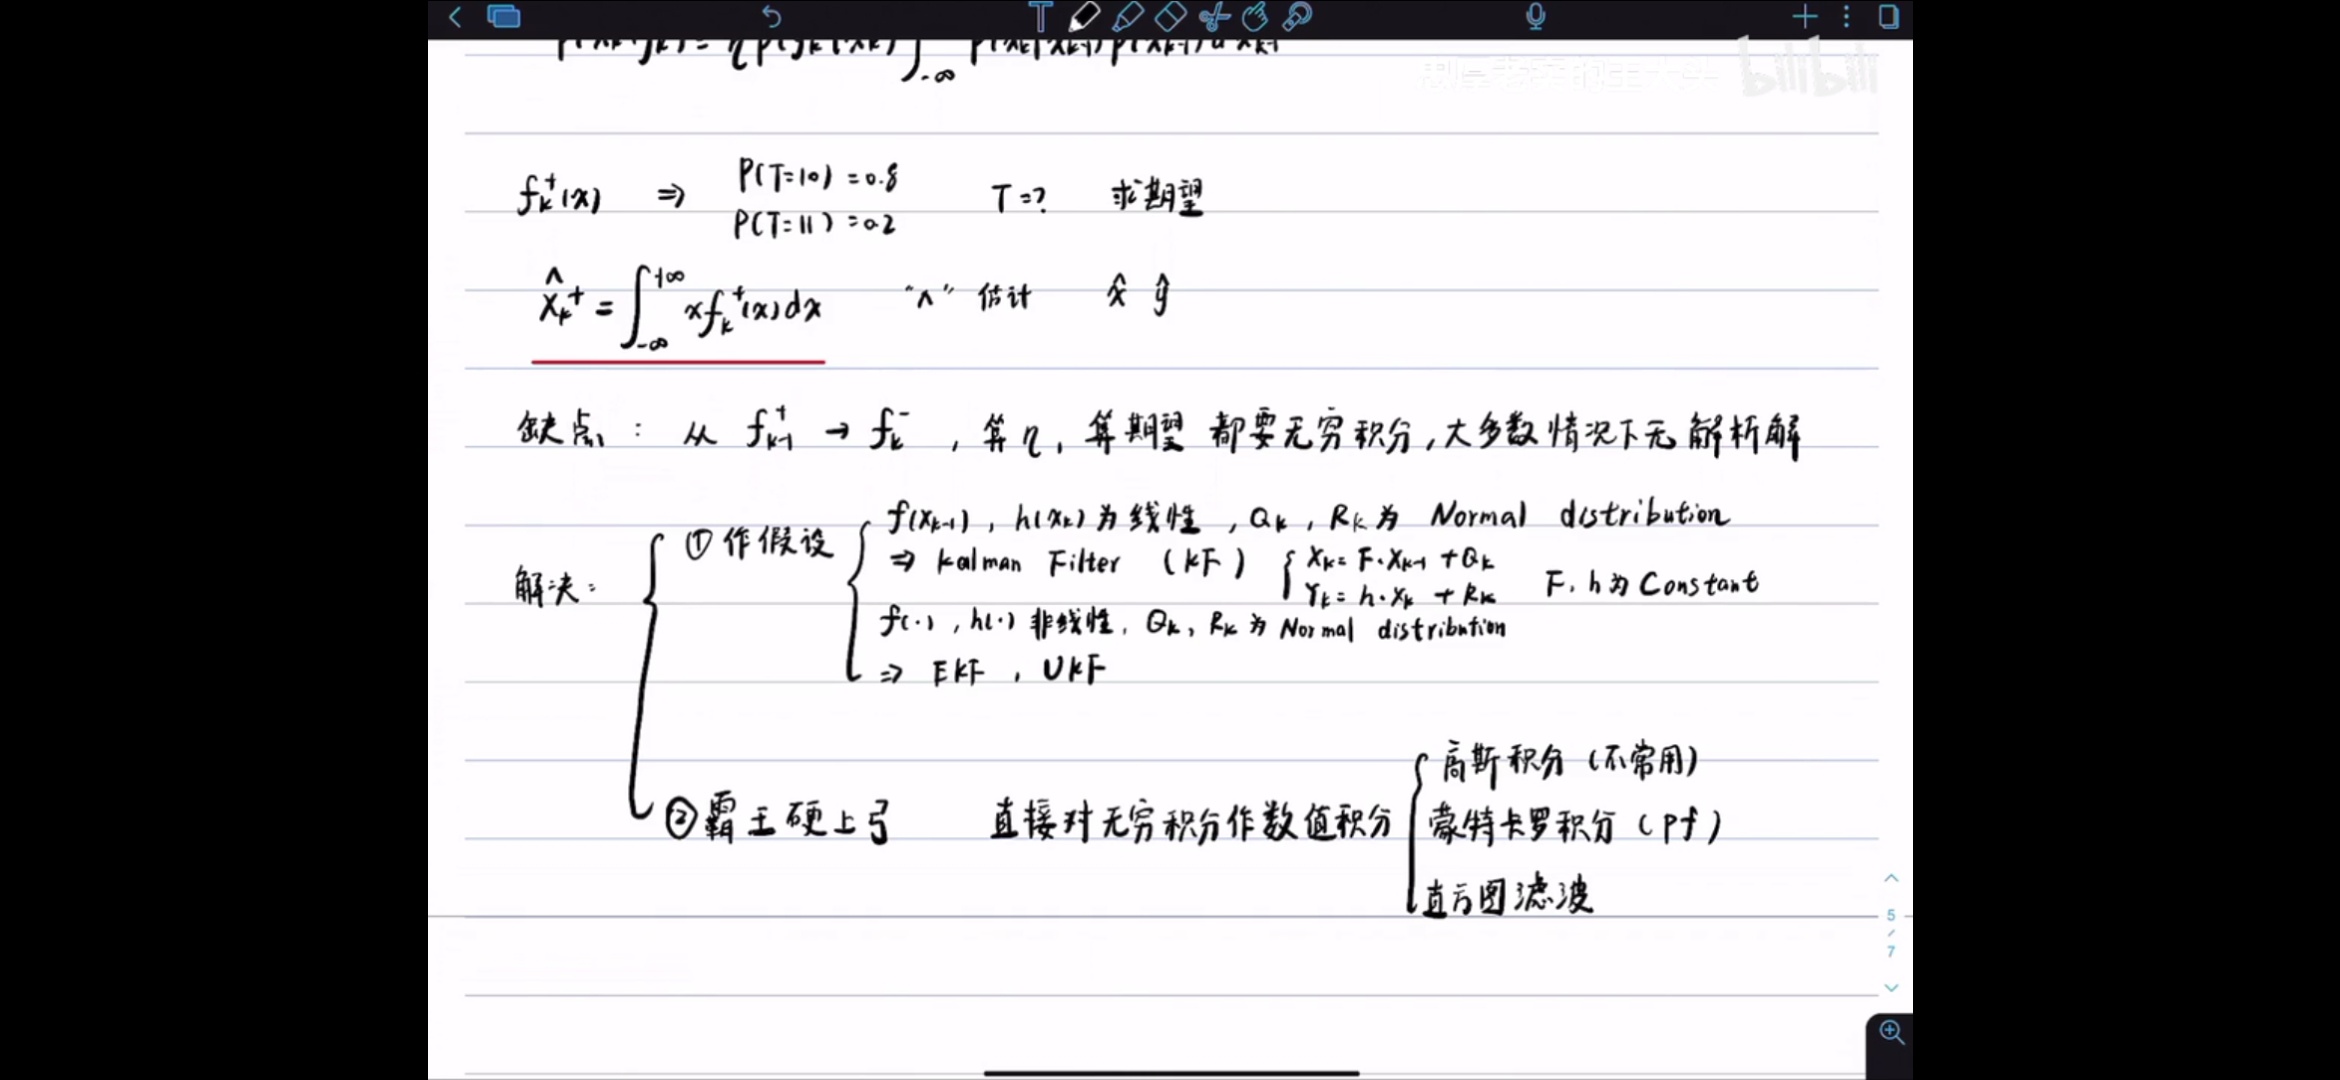 f_k^+(x) ⇒ P(T=10)=0.8 T=? 求期望
P(T=11)=0.2
x̂_k^+ = ∫_{-∞}^{+∞} x f_k^+(x) dx "∧" 估计 x̂ ŷ
缺点: 从 f_{k-1}^+ → f_k^-, 算η, 算期望 都要无穷积分, 大多数情况下无解析解
解决:
① 作假设
f(x_{k-1}), h(x_k) 为线性, Q_k, R_k 为 Normal distribution
⇒ kalman Filter (kF) { X_k = F·X_{k-1} + Q_k
Y_k = h·X_k + R_k F, h 为 Constant
f(·), h(·) 非线性, Q_k, R_k 为 Normal distribution
⇒ EKF, UKF
② 霸王硬上弓 直接对无穷积分作数值积分
高斯积分 (不常用)
蒙特卡罗积分 (pf)
直方图滤波
bilibili
5
/
7